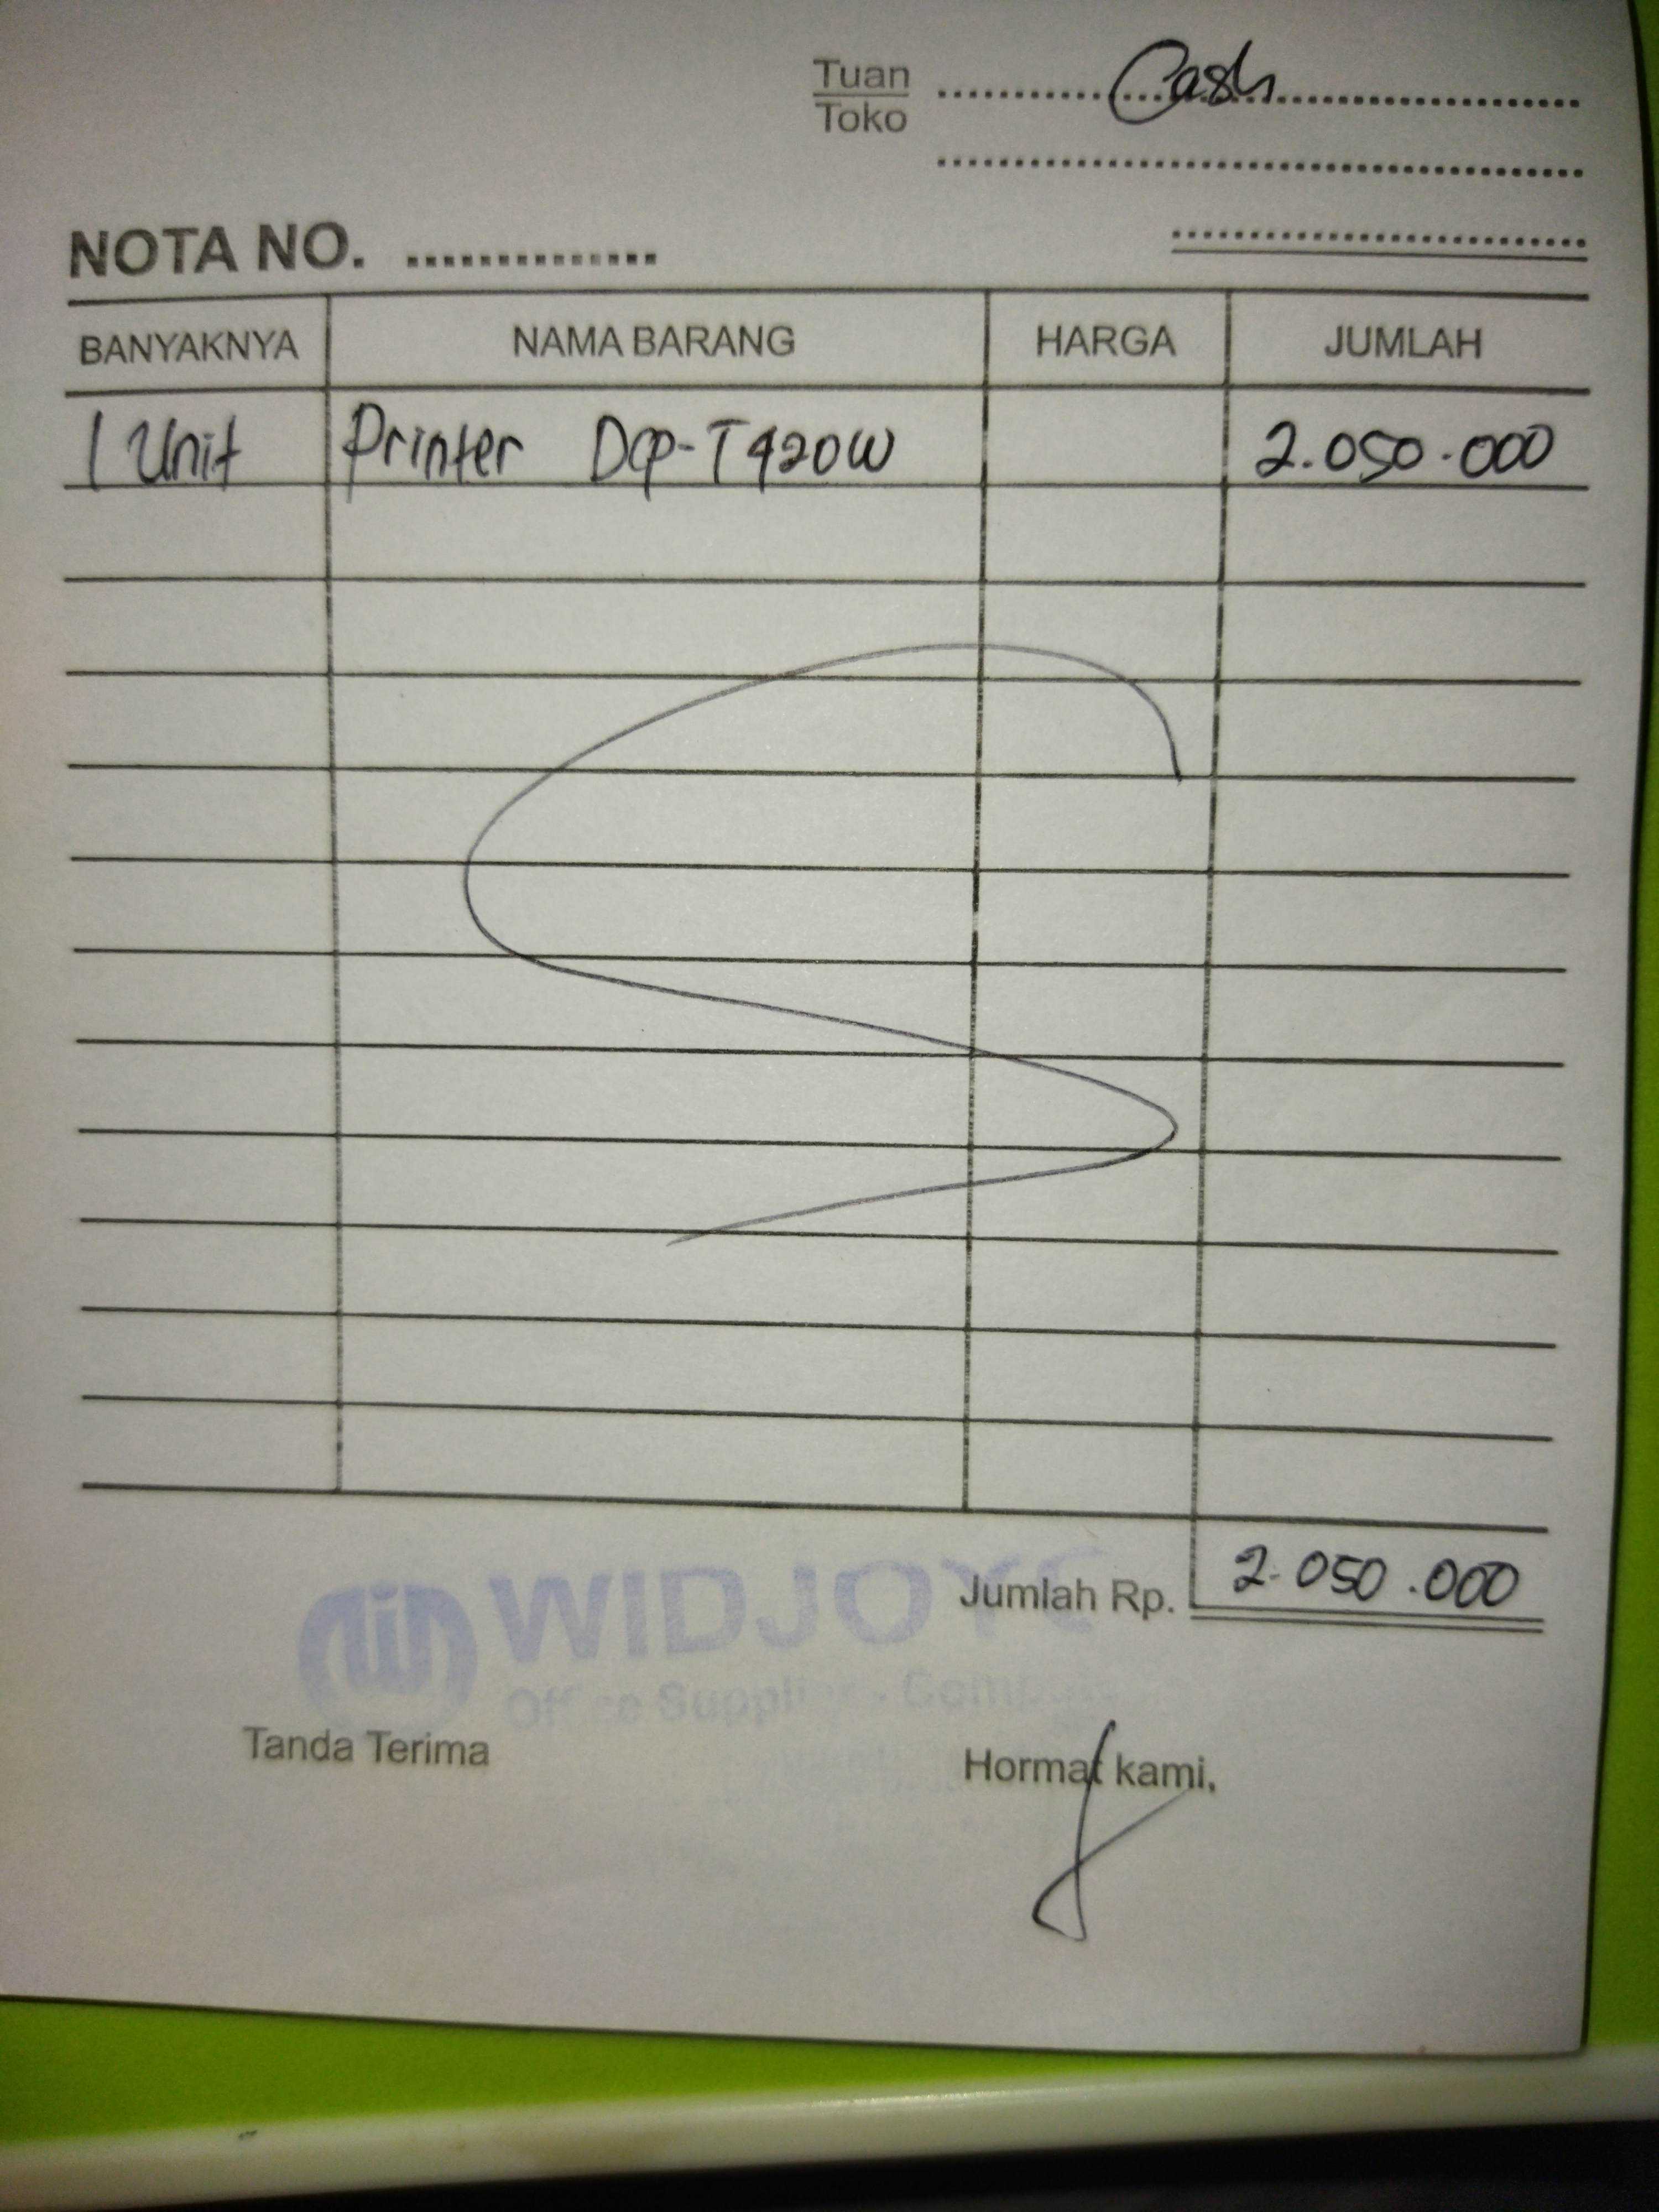 Tuan Cash
Toko
NOTA NO.
BANYAKNYA NAMA BARANG HARGA JUMLAH
1 Unit Printer DCP-T420W 2.050.000
Jumlah Rp. 2.050.000
WIDJOYO
Tanda Terima Hormat kami,